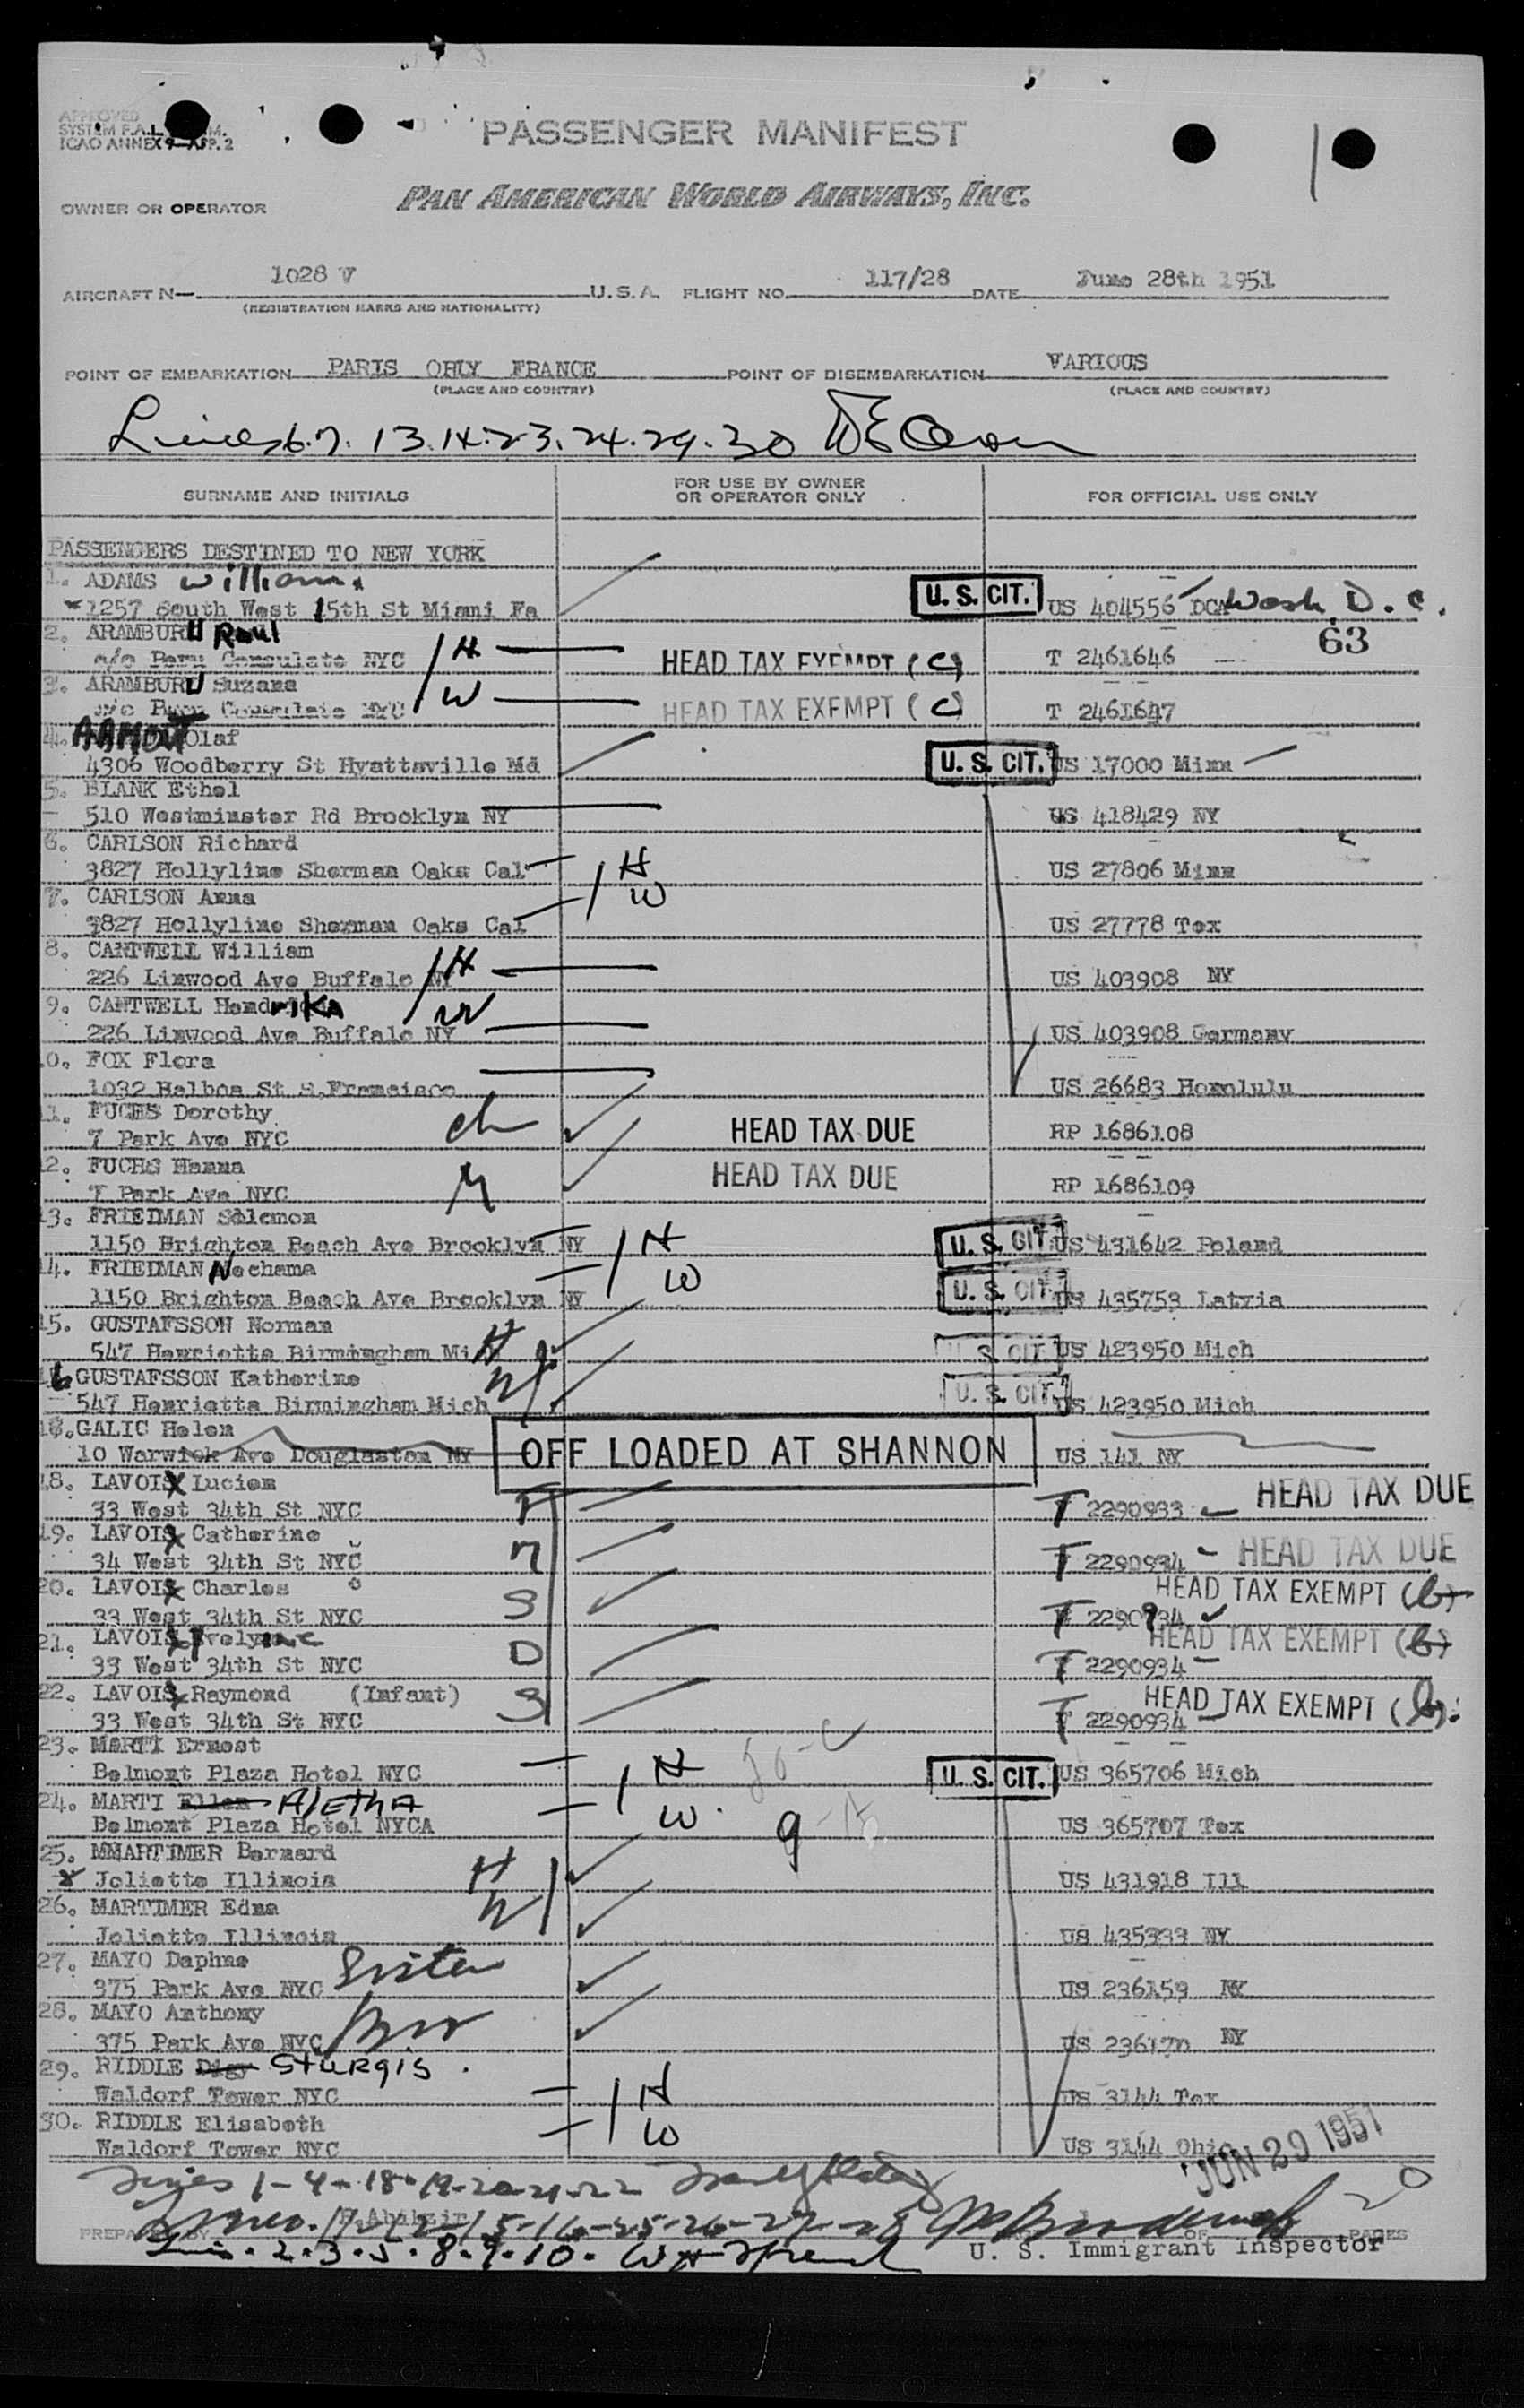 APPROVED
SYSTEM F.A.L. M.
ICAO ANNEX 9 APP. 2
PASSENGER MANIFEST
OWNER OR OPERATOR PAN AMERICAN WORLD AIRWAYS, INC.
AIRCRAFT N— 1028 V U.S.A. FLIGHT NO. 117/28 DATE June 28th 1951
(REGISTRATION MARKS AND NATIONALITY)
POINT OF EMBARKATION PARIS ORLY FRANCE POINT OF DISEMBARKATION VARIOUS
(PLACE AND COUNTRY) (PLACE AND COUNTRY)
Lines 6.7.13.14.23.24.29.30
SURNAME AND INITIALS FOR USE BY OWNER OR OPERATOR ONLY FOR OFFICIAL USE ONLY
PASSENGERS DESTINED TO NEW YORK
1. ADAMS William
1257 South West 15th St Miami Fa U. S. CIT. US 404556 DCA Wash. D. C.
2. ARAMBURU Raul 63
c/o Peru Consulate NYC H HEAD TAX EXEMPT (C) T 2461646
3. ARAMBURU Suzana
c/o Peru Consulate NYC W HEAD TAX EXEMPT (C) T 2461647
4. AAMOT Olaf
4306 Woodberry St Hyattsville Md U. S. CIT. US 17000 Minn
5. BLANK Ethel
510 Westminster Rd Brooklyn NY US 418429 NY
6. CARLSON Richard
3827 Hollyline Sherman Oaks Cal H US 27806 Minn
7. CARLSON Anna
3827 Hollyline Sherman Oaks Cal W US 27778 Tex
8. CANTWELL William
226 Linwood Ave Buffalo NY H US 403908 NY
9. CANTWELL Hendrika
226 Linwood Ave Buffalo NY W US 403908 Germany
10. FOX Flora
1032 Balboa St S.Francisco US 26683 Honolulu
11. FUCHS Dorothy
7 Park Ave NYC ch HEAD TAX DUE RP 1686108
12. FUCHS Hanna
7 Park Ave NYC M HEAD TAX DUE RP 1686109
13. FRIEDMAN Solomon
1150 Brighton Beach Ave Brooklyn NY H U. S. CIT. US 431642 Poland
14. FRIEDMAN Nechama
1150 Brighton Beach Ave Brooklyn NY W U. S. CIT. US 435753 Latvia
15. GUSTAFSSON Norman
547 Henrietta Birmingham Mi H U. S. CIT. US 423950 Mich
16 GUSTAFSSON Katherine
547 Henrietta Birmingham Mich W U. S. CIT. US 423950 Mich
GALIC Helen
10 Warwick Ave Douglaston NY OFF LOADED AT SHANNON US 141 NY
18. LAVOIX Lucien
33 West 34th St NYC F T 2290933 HEAD TAX DUE
19. LAVOIX Catherine
34 West 34th St NYC M T 2290934 HEAD TAX DUE
20. LAVOIX Charles HEAD TAX EXEMPT (b)
33 West 34th St NYC S T 2290934
21. LAVOIX Evelyne HEAD TAX EXEMPT (b)
33 West 34th St NYC D T 2290934
22. LAVOIX Raymond (Infant) HEAD TAX EXEMPT (b)
33 West 34th St NYC S T 2290934
23. MARTI Ernest
Belmont Plaza Hotel NYC H U. S. CIT. US 365706 Mich
24. MARTI Ellen AletHA
Belmont Plaza Hotel NYCA W 9 US 365707 Tex
25. MMARTIMER Bernard
Joliette Illinois H US 431918 Ill
26. MARTIMER Edna
Joliette Illinois W US 435333 NY
27. MAYO Daphne
375 Park Ave NYC Sister US 236159 NY
28. MAYO Anthony
375 Park Ave NYC Bro US 236170 NY
29. RIDDLE Sturgis.
Waldorf Tower NYC H US 3144 Tex
30. RIDDLE Elisabeth
Waldorf Tower NYC W US 3144 Ohio
JUN 29 1951
Lines 1-4-18-19-20-21-22
Lines. 11-12-15-16-25-26-27-28
PREPARED BY OF PAGES
Lines. 2.3.5.8.9.10.
U. S. Immigrant Inspector